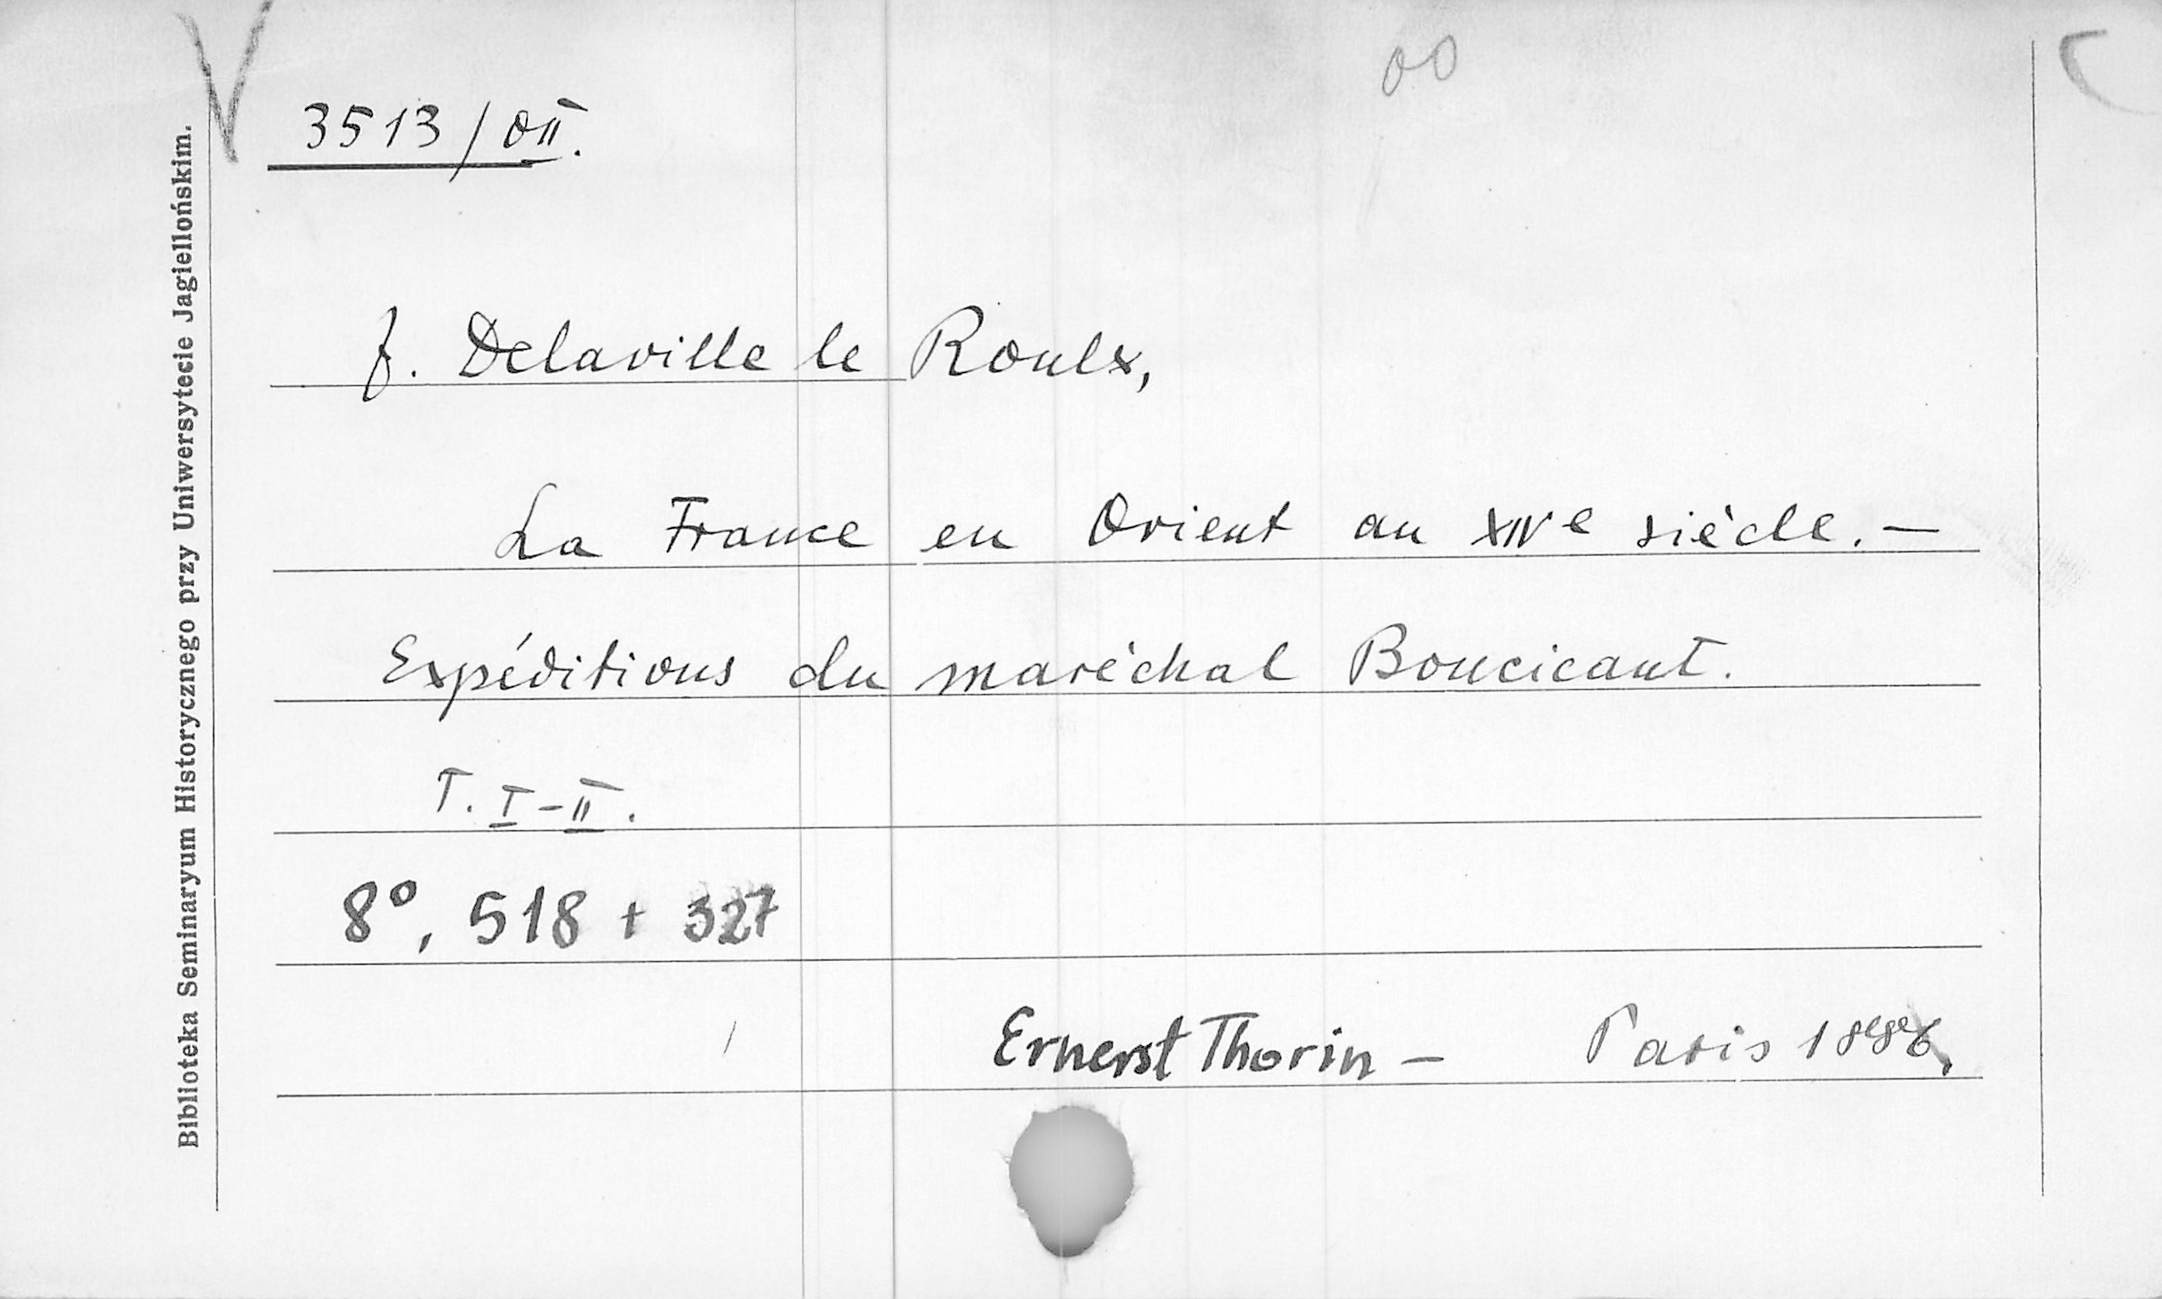 00
3513/OII.
J. Delaville le Roulx,
La France en Orient au XIVe siècle. —
Expéditions du maréchal Boucicaut.
T. I-II.
8°, 518 + 327
Ernerst Thorin — Paris 1886.
Biblioteka Seminaryum Historycznego przy Uniwersytecie Jagiellońskim.